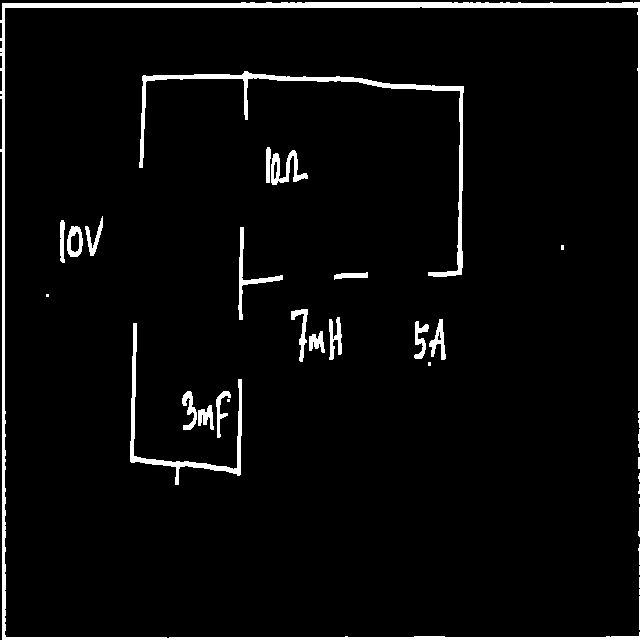 10Ω
10V
7mH
5A
3mF